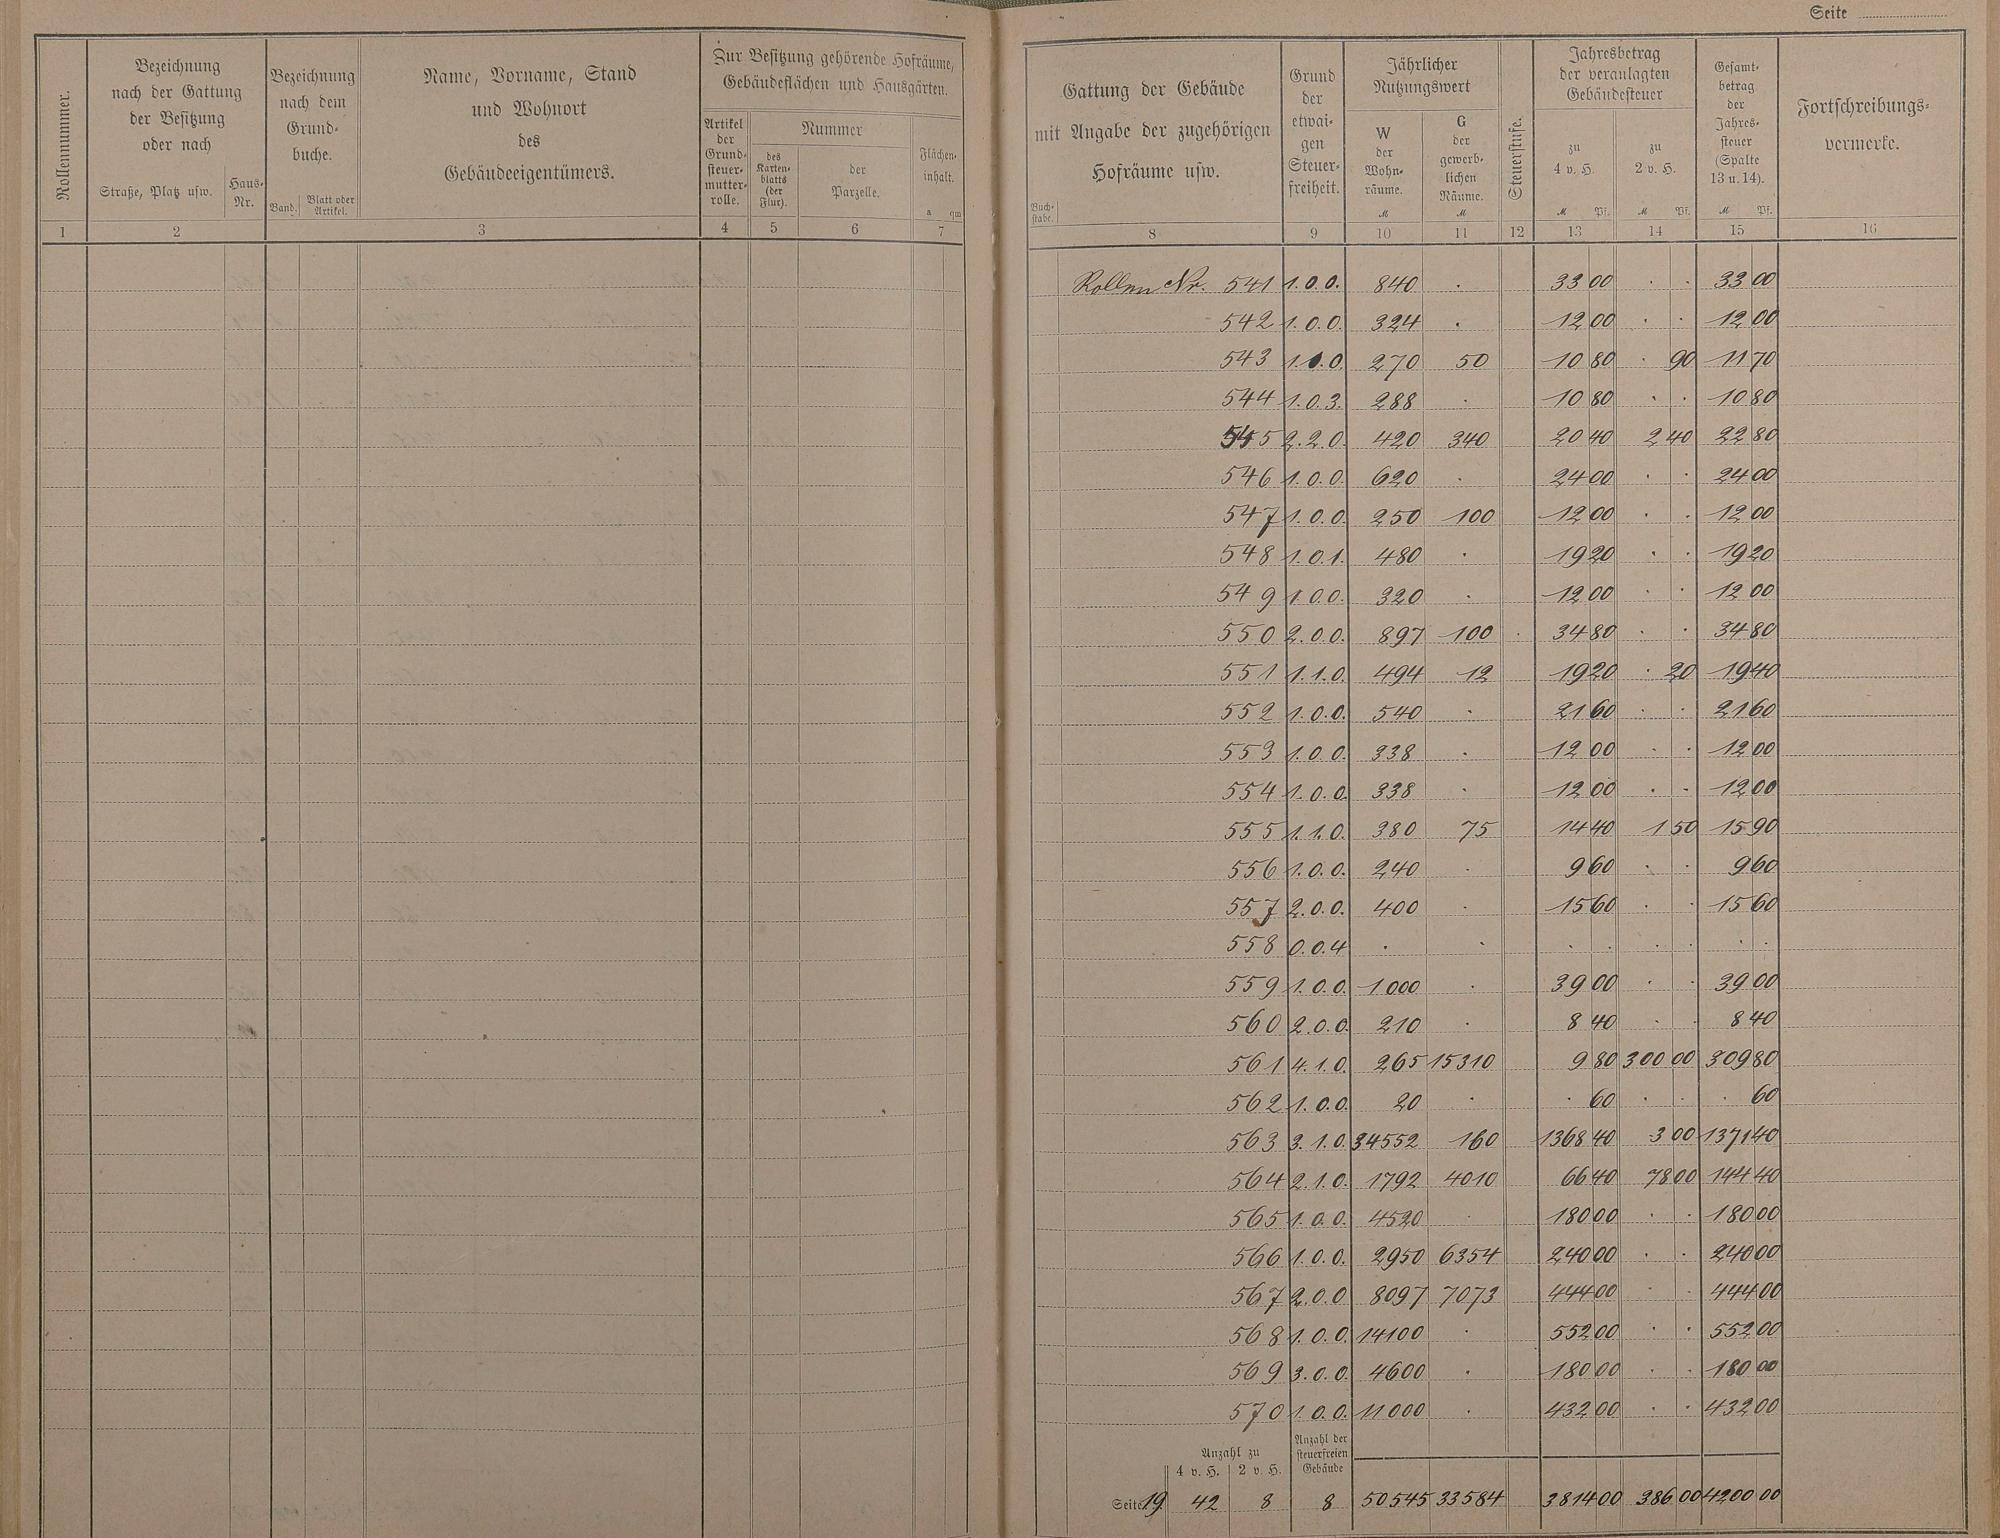 Seite
Rollennummer.
Bezeichnung
nach der Gattung
der Besitzung
oder nach
Straße, Platz usw.
Haus-
Nr.
Bezeichnung
nach dem
Grund-
buche.
Band.
Blatt oder
Artikel.
Name, Vorname, Stand
und Wohnort
des
Gebäudeeigentümers.
Zur Besitzung gehörende Hofräume,
Gebäudeflächen und Hausgärten.
Artikel
der
Grund-
steuer-
mutter-
rolle.
Nummer
des
Karten-
blatts
(der
Flur).
der
Parzelle.
Flächen-
inhalt.
a qm
1 2 3 4 5 6 7
Gattung der Gebäude
mit Angabe der zugehörigen
Hofräume usw.
Buch-
stabe.
Grund
der
etwai-
gen
Steuer-
freiheit.
Jährlicher
Nutzungswert
W
der
Wohn-
räume.
M
G
der
gewerb-
lichen
Räume.
M
Steuerstufe.
Jahresbetrag
der veranlagten
Gebäudesteuer
zu
4 v. H.
M Pf.
zu
2 v. H.
M Pf.
Gesamt-
betrag
der
Jahres-
steuer
(Spalte
13 u. 14).
M Pf.
Fortschreibungs-
vermerke.
8 9 10 11 12 13 14 15 16
Rollen Nr. 541 1.0.0. 840 . 33 00 . . 33 00
542 1.0.0. 324 . 12 00 . . 12 00
543 1.1.0. 270 50 10 80 . 90 11 70
544 1.0.3. 288 . 10 80 . . 10 80
545 2.2.0. 420 340 20 40 2 40 22 80
546 1.0.0. 620 . 24 00 . . 24 00
547 1.0.0. 250 100 12 00 . . 12 00
548 1.0.1. 480 . 19 20 . . 19 20
549 1.0.0. 320 . 12 00 . . 12 00
550 2.0.0. 897 100 . 34 80 . . 34 80
551 1.1.0. 494 12 19 20 . 20 19 40
552 1.0.0. 540 . 21 60 . . 21 60
553 1.0.0. 338 . 12 00 . . 12 00
554 1.0.0. 338 . 12 00 . . 12 00
555 1.1.0. 380 75 14 40 1 50 15 90
556 1.0.0. 240 . 9 60 . . 9 60
557 2.0.0. 400 . 15 60 . . 15 60
558 0.0.4 . . . . . . . .
559 1.0.0. 1000 . 39 00 . . 39 00
560 2.0.0. 210 . 8 40 . . 8 40
561 4.1.0. 265 15310 9 80 300 00 309 80
562 1.0.0. 20 . . 60 . . . 60
563 3.1.0. 34552 160 1368 40 3 00 1371 40
564 2.1.0. 1792 4010 66 40 78 00 144 40
565 1.0.0. 4520 . 180 00 . . 180 00
566 1.0.0. 2950 6354 240 00 . . 240 00
567 2.0.0 8097 7073 444 00 . . 444 00
568 1.0.0. 14100 . 552 00 . . 552 00
569 3.0.0. 4600 . 180 00 . . 180 00
570 1.0.0. 11000 . 432 00 . . 432 00
Anzahl zu
4 v. H. 2 v. H.
Anzahl der
steuerfreien
Gebäude
Seite 19. 42 8 8 50545 33584 3814 00 386 00 4200 00